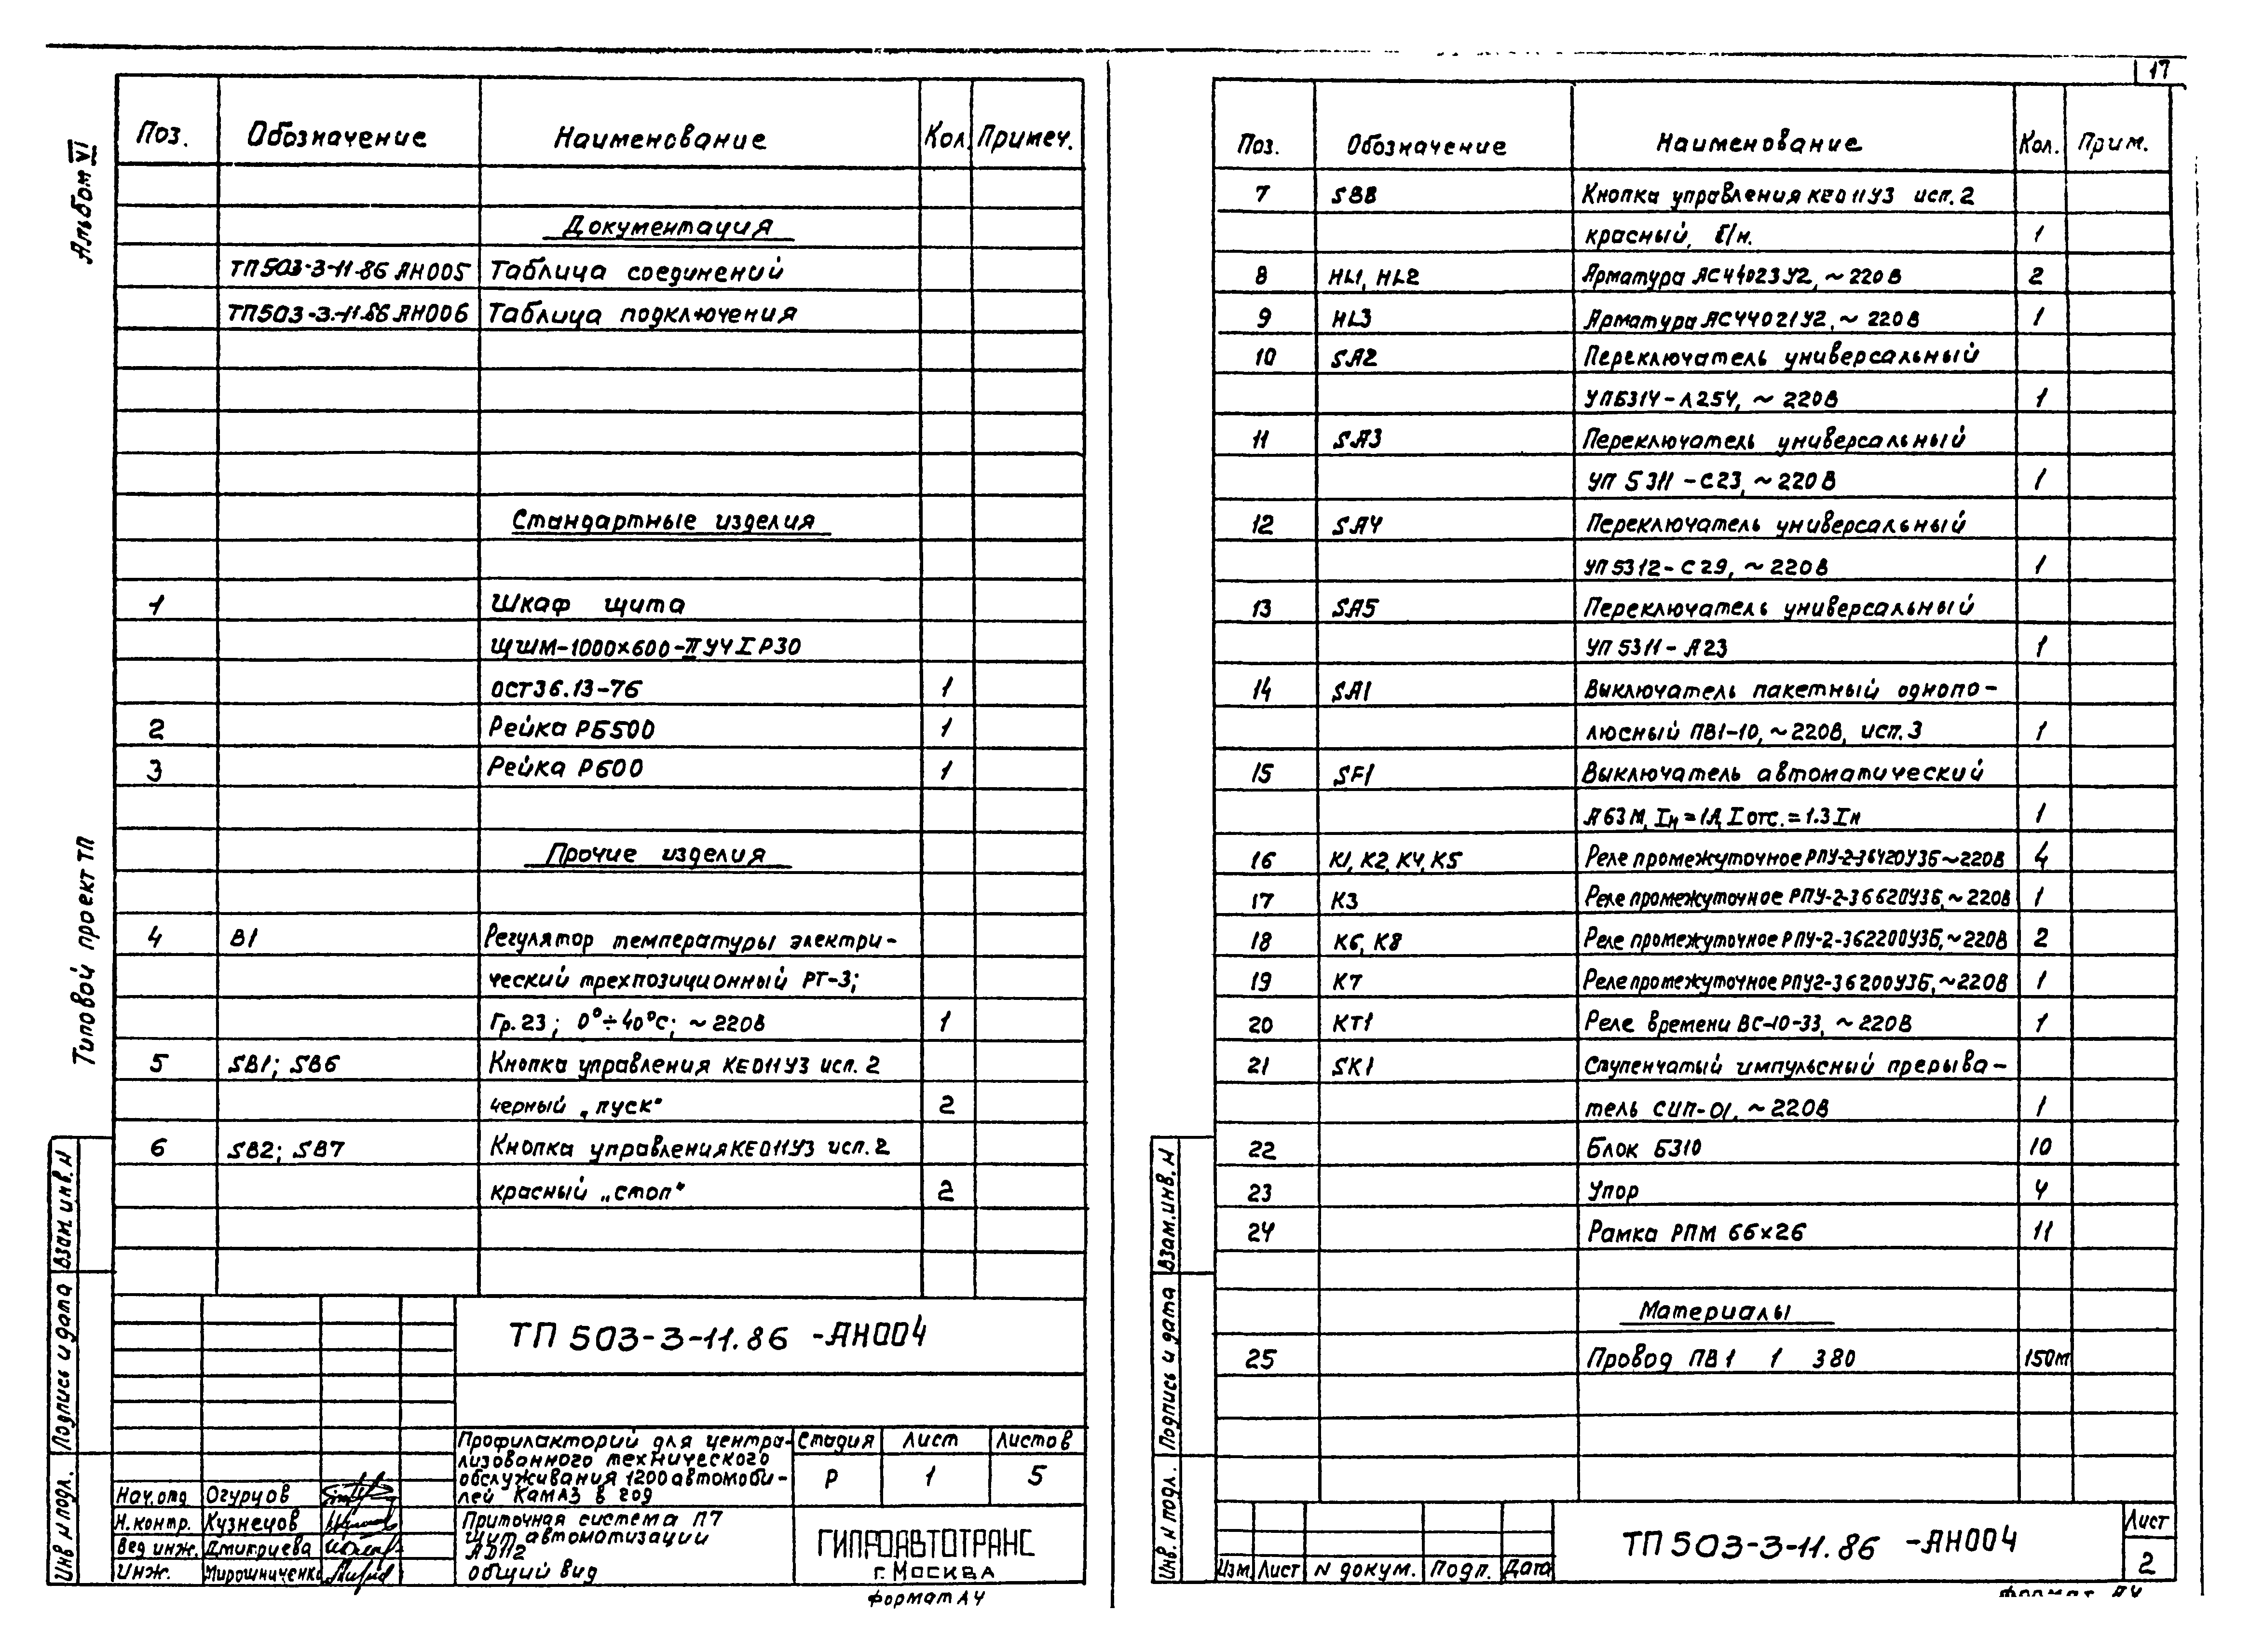 17
Альбом VI
Типовой проект ТП
Поз. Обозначение Наименование Кол. Примеч.
Документация
ТП503-3-11-86 АН005 Таблица соединений
ТП503-3-11.86 АН006 Таблица подключения
Стандартные изделия
1 Шкаф щита
ЩШМ-1000х600-IIУЧIР30
ОСТ36.13-76 1
2 Рейка РБ500 1
3 Рейка Р600 1
Прочие изделия
4 В1 Регулятор температуры электри-
ческий трехпозиционный РТ-3;
Гр.23; 0°÷40°С; ~220В 1
5 SB1; SB6 Кнопка управления КЕ011У3 исп. 2
черный „пуск" 2
6 SB2; SB7 Кнопка управления КЕ011У3 исп. 2
красный „стоп" 2
ТП 503-3-11.86 -АН004
Профилакторий для центра-
лизованного технического
обслуживания 1200 автомоби-
лей КамАЗ в год
Стадия Лист Листов
Р 1 5
Приточная система П7
Щит автоматизации
АДП2
общий вид
ГИПРОАВТОТРАНС
г. Москва
Нач.отд Огурцов
Н.контр. Кузнецов
Вед инж. Дмитриева
Инж. Мирошниченко
Инв N подл. Подпись и дата Взам. инв. N
Формат А4
Поз. Обозначение Наименование Кол. Прим.
7 SB8 Кнопка управления КЕ011У3 исп. 2
красный, б/н. 1
8 HL1, HL2 Арматура АС44023У2, ~220В 2
9 HL3 Арматура АС44021У2, ~220В 1
10 SA2 Переключатель универсальный
УП5314-А254, ~220В 1
11 SA3 Переключатель универсальный
УП 5311-С23, ~220В 1
12 SA4 Переключатель универсальный
УП5312-С29, ~220В 1
13 SA5 Переключатель универсальный
УП5311-А23 1
14 SA1 Выключатель пакетный однопо-
люсный ПВ1-10, ~220В, исп. 3 1
15 SF1 Выключатель автоматический
А63М, Iн=1А, Iотс.=1.3Iн 1
16 К1, К2, К4, К5 Реле промежуточное РПУ-2-36420У3Б ~220В 4
17 К3 Реле промежуточное РПУ-2-36620У3Б, ~220В 1
18 К6, К8 Реле промежуточное РПУ-2-362200У3Б, ~220В 2
19 К7 Реле промежуточное РПУ2-36200У3Б, ~220В 1
20 КТ1 Реле времени ВС-10-33, ~220В 1
21 SK1 Ступенчатый импульсный прерыва-
тель СИП-01, ~220В 1
22 Блок Б310 10
23 Упор 4
24 Рамка РПМ 66х26 11
Материалы
25 Провод ПВ1 1 380 150м
Изм Лист N докум. Подп. Дата
ТП 503-3-11.86 -АН004
Лист
2
Инв. N подл. Подпись и дата Взам. инв. N
Формат А4